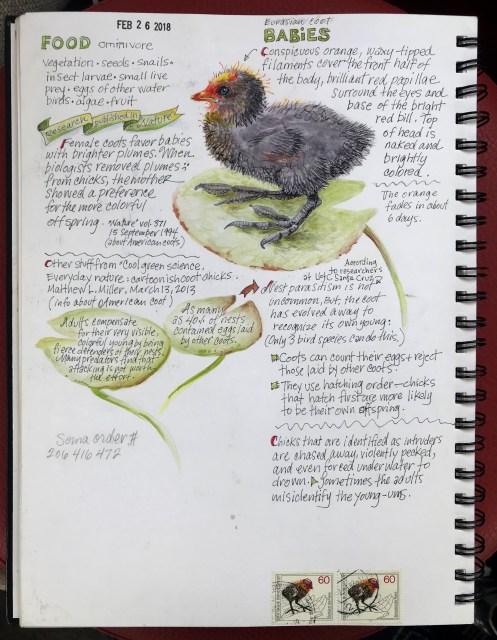 FEB 26 2018
FOOD omnivore
vegetation · seeds · snails ·
insect larvae · small live
prey · eggs of other water
birds · algae · fruit
Research published in "Nature"
Female coots favor babies
with brighter plumes. When
biologists removed plumes
from chicks, the mother
showed a preference
for the more colorful
offspring. "Nature" vol. 371
15 September 1994
(about American coots)
Other stuff from "Cool green science,
Everyday nature: cartoonish coot chicks.
Matthew L. Miller. March 13, 2013
(info about American coot)
Adults compensate
for their very visible,
colorful young by being
fierce defenders of their nests.
Many predators find that
attacking is not worth
the effort.
As many
as 40% of nests
contained eggs laid
by other coots.
Senna order #
206 416 472
Eurasian coot
BABIES
Conspicuous orange, waxy-tipped
filaments cover the front half of
the body, brilliant red papillae
surround the eyes and
base of the bright
red bill. Top
of head is
naked and
brightly
colored.
The orange
fades in about
6 days.
According
to researchers
at UofC Santa Cruz
Nest parasitism is not
uncommon, but the coot
has evolved a way to
recognize its own young.
(Only 3 bird species can do this)
Coots can count their eggs & reject
those laid by other coots.
They use hatching order—chicks
that hatch first are more likely
to be their own offspring.
Chicks that are identified as intruders
are chased away, violently pecked,
and even forced underwater to
drown. Sometimes the adults
misidentify the young-uns.
60
60